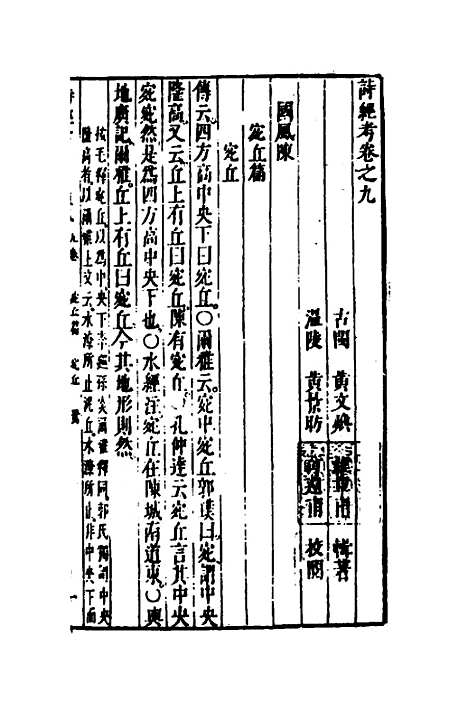 詩經考卷之九
古閩 黃文煥 甫 輯著
溫陵 黃景昉 甫 校閱
國風陳
宛丘篇
宛丘
傳云四方高中央下曰宛丘〇爾雅云宛中宛丘郭璞曰宛謂中央
隆高又云丘上有丘曰宛丘陳有宛丘 孔仲達云宛丘言其中央
宛宛然是為四方高中央下也〇水經注宛丘在陳城南道東〇輿
地廣記爾雅丘上有丘曰宛丘今其地形則然
按毛釋宛丘以為中央下 爾雅釋同郭氏獨謂中央
隆高者以爾雅上文云水潦所止泥丘水潦所止非中央下而